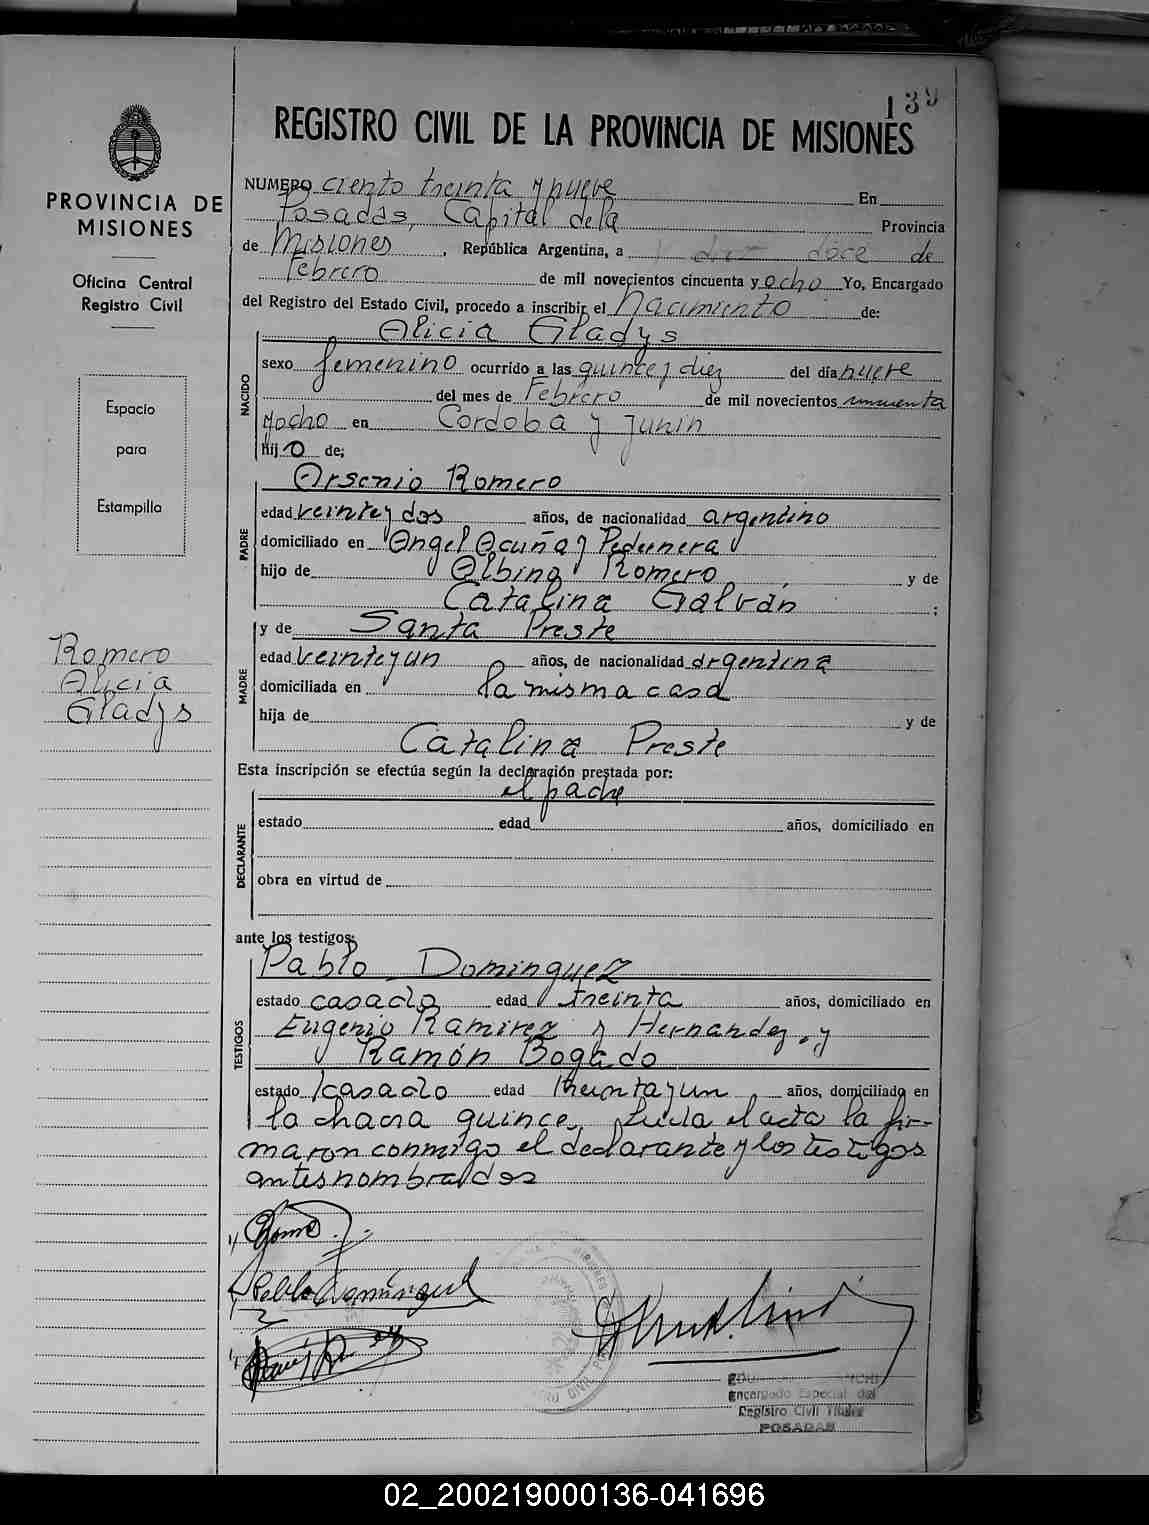 139
REGISTRO CIVIL DE LA PROVINCIA DE MISIONES
PROVINCIA DE
MISIONES
Oficina Central
Registro Civil
Espacio
para
Estampilla
Romero
Alicia
Gladys
NUMERO ciento treinta y nueve En
Posadas, Capital de la Provincia
de Misiones, República Argentina, a doce de
Febrero de mil novecientos cincuenta y ocho Yo, Encargado
del Registro del Estado Civil, procedo a inscribir el Nacimiento de:
NACIDO
Alicia Gladys
sexo femenino ocurrido a las quince y diez del día nueve
del mes de Febrero de mil novecientos cincuenta
y ocho en Cordoba y Junin
hijo de;
PADRE
Arsenio Romero
edad veinte y dos años, de nacionalidad argentino
domiciliado en Angel Acuña y Pedernera
hijo de Albino Romero y de
Catalina Galván ;
MADRE
y de Santa Preste
edad veinte y un años, de nacionalidad argentina
domiciliada en la misma casa
hija de y de
Catalina Preste
Esta inscripción se efectúa según la declaración prestada por:
DECLARANTE
el padre
estado edad años, domiciliado en
obra en virtud de
ante los testigos:
TESTIGOS
Pablo Dominguez
estado casado edad treinta años, domiciliado en
Eugenio Ramirez y Hernandez, y
Ramón Bogado
estado casado edad treinta y un años, domiciliado en
la chacra quince. Leida el acta la fir-
maron conmigo el declarante y los testigos
antes nombrados
Pablo Dominguez
Encargado Especial del
Registro Civil Titular
POSADAS
02_200219000136-041696